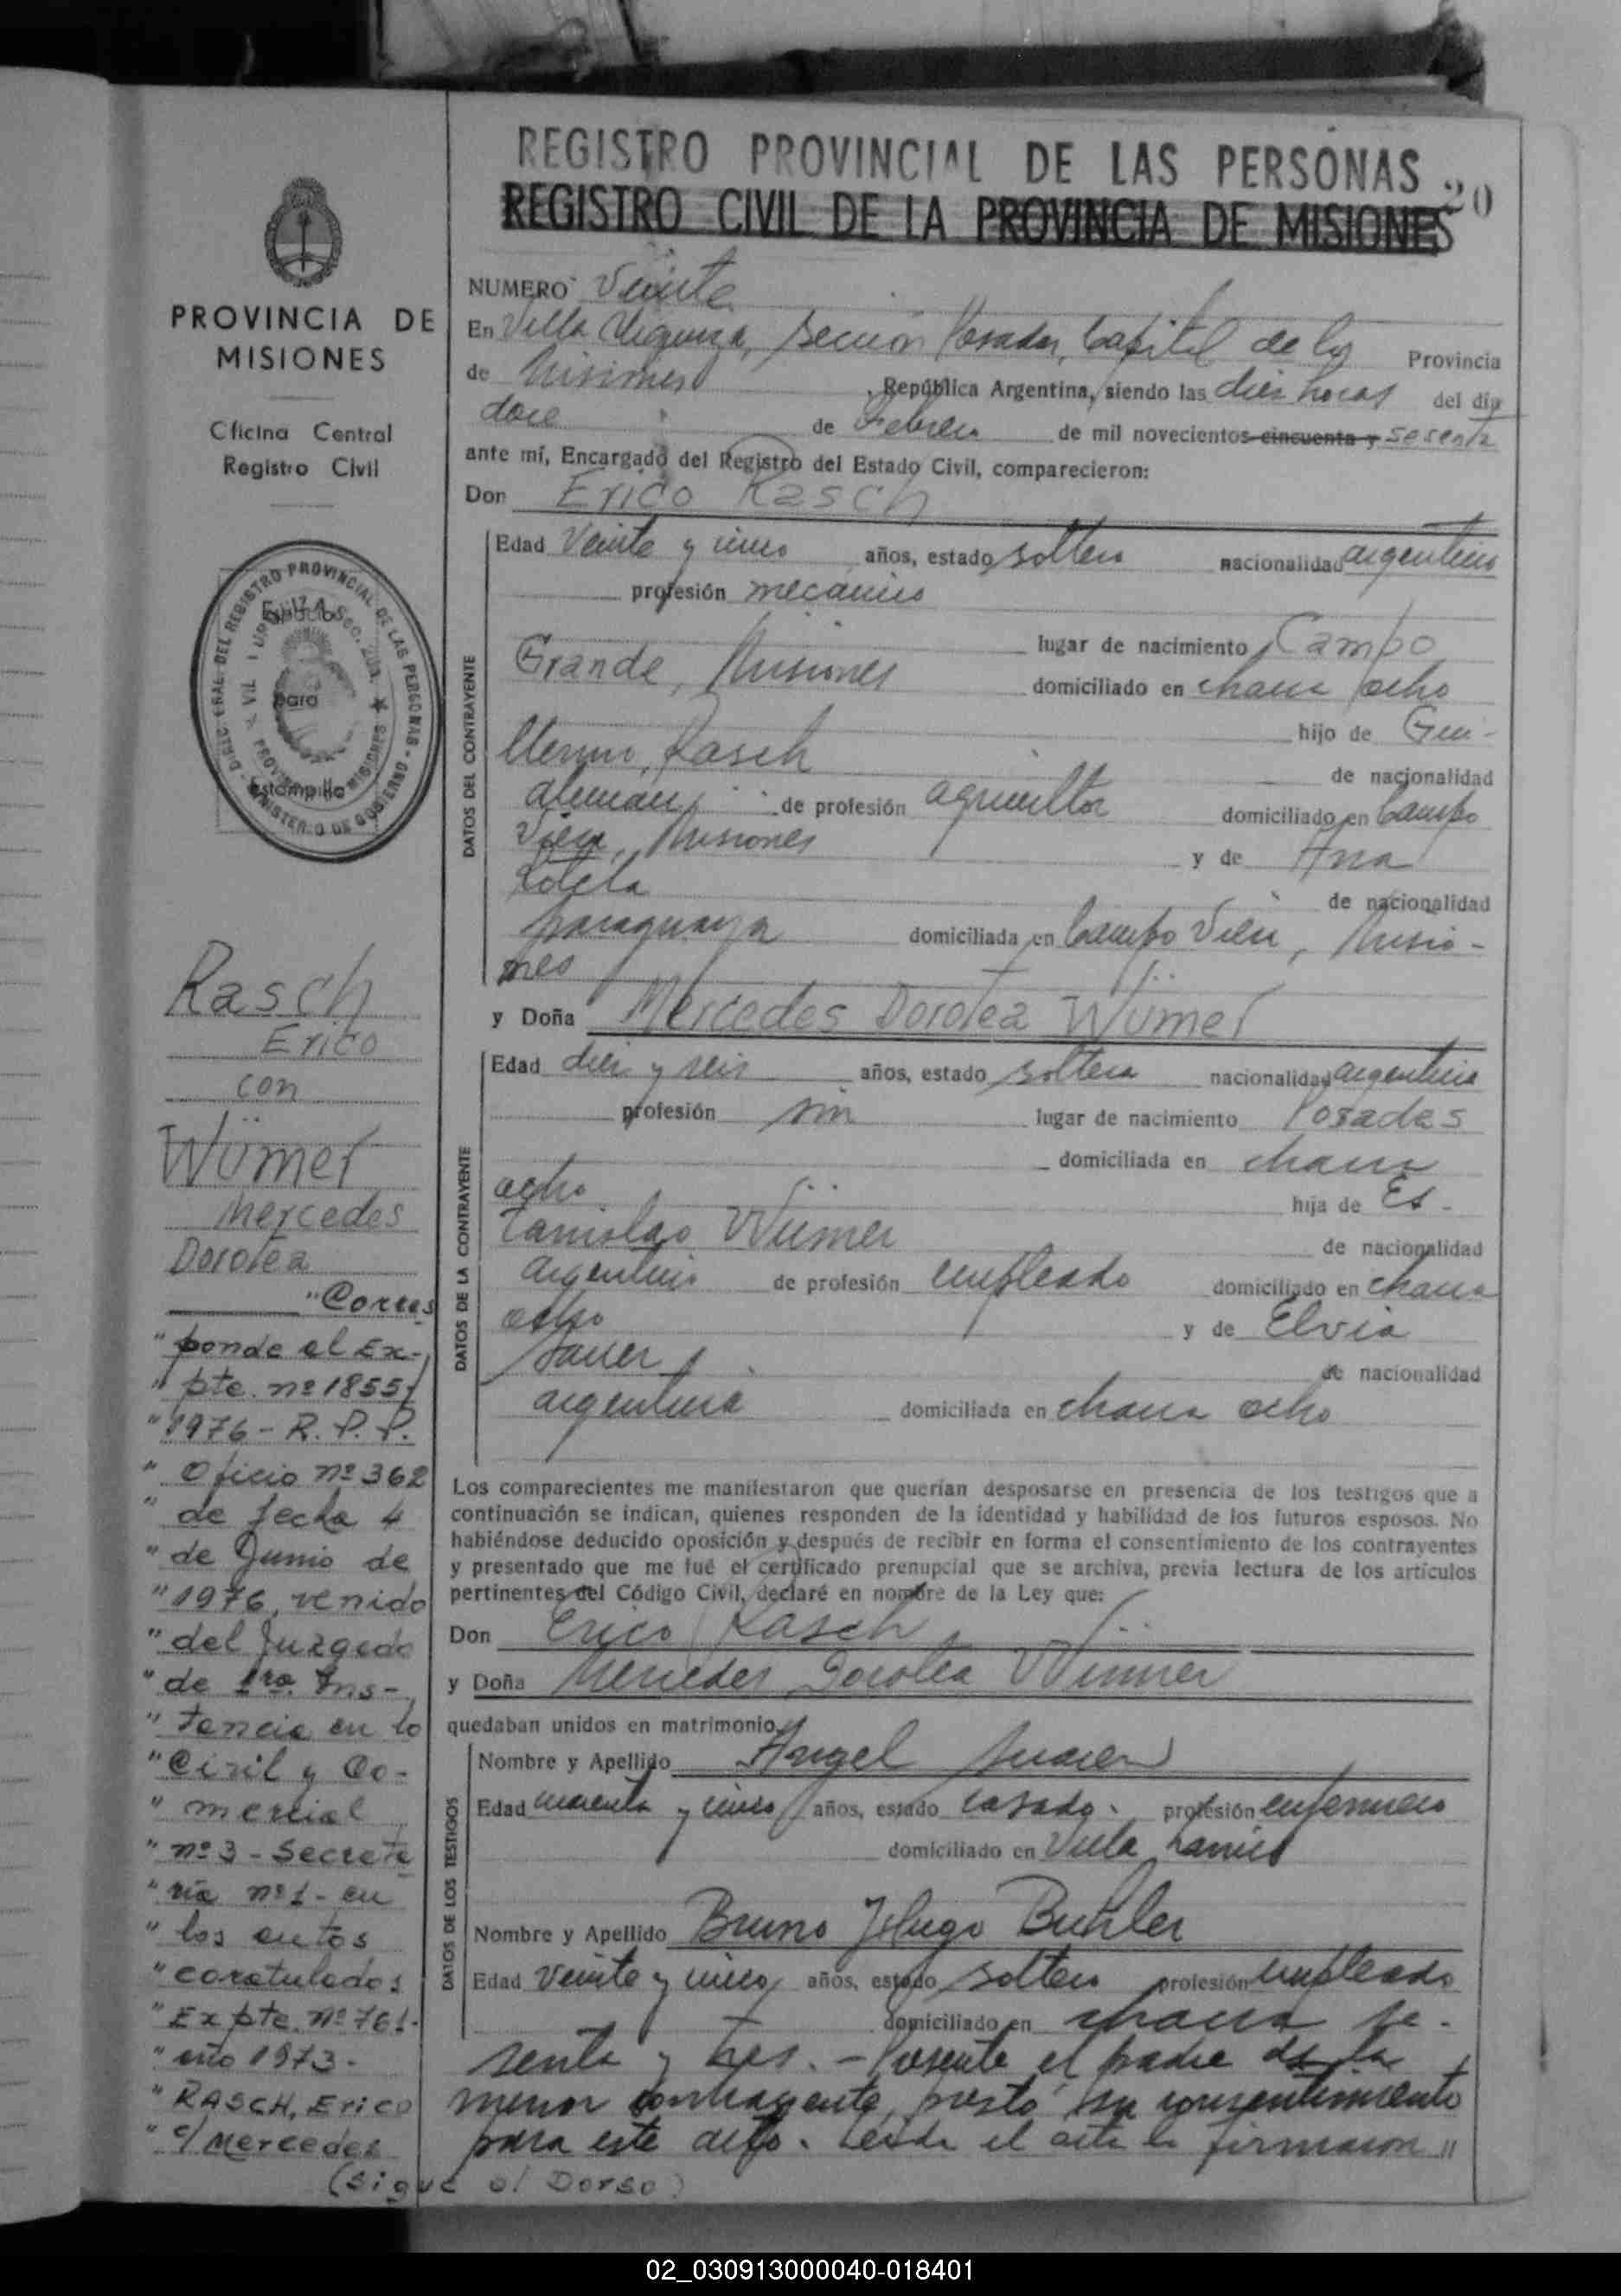 REGISTRO PROVINCIAL DE LAS PERSONAS
20
REGISTRO CIVIL DE LA PROVINCIA DE MISIONES
PROVINCIA DE
MISIONES
Oficina Central
Registro Civil
Rasch
Erico
con
Wümer
Mercedes
Dorotea
"Corres
"ponde al Ex-
"pte. nº 1855/
"1976 - R. P. P.
"Oficio nº 362
"de fecha 4
"de Junio de
"1976, venido
"del Juzgado
"de 1ra. Ins-
"tancia en lo
"Civil y Co-
"mercial
"nº 3 - Secreta
"ria nº 1 - en
"los autos
"caratulados
"Expte. Nº 761-
"año 1973 -
"RASCH, Erico
"c/ Mercedes
(sigue al Dorso)
NUMERO Veinte
En Villa Urquiza, Sección Posadas, Capital de la Provincia
de Misiones, República Argentina, siendo las diez horas del día
doce de Febrero de mil novecientos cincuenta y sesenta
ante mí, Encargado del Registro del Estado Civil, comparecieron:
Don Erico Rasch
DATOS DEL CONTRAYENTE
Edad Veinte y cinco años, estado soltero nacionalidad argentino
profesión mecánico
lugar de nacimiento Campo
Grande, Misiones domiciliado en chacra ocho
hijo de Gui-
llermo Rasch
de nacionalidad
alemán de profesión agricultor domiciliado en Campo
Viera, Misiones y de Ana
de nacionalidad
paraguaya domiciliada en Campo Viera, Misio-
nes
y Doña Mercedes Dorotea Wümer
DATOS DE LA CONTRAYENTE
Edad diez y seis años, estado soltera nacionalidad argentina
profesión sin lugar de nacimiento Posadas
domiciliada en chacra
ocho hija de Es-
tanislao Wümer de nacionalidad
argentino de profesión empleado domiciliado en chacra
ocho y de Elvia
de nacionalidad
argentina domiciliada en chacra ocho
Los comparecientes me manifestaron que querían desposarse en presencia de los testigos que a
continuación se indican, quienes responden de la identidad y habilidad de los futuros esposos. No
habiéndose deducido oposición y después de recibir en forma el consentimiento de los contrayentes
y presentado que me fué el certificado prenupcial que se archiva, previa lectura de los artículos
pertinentes del Código Civil, declaré en nombre de la Ley que:
Don Erico Rasch
y Doña Mercedes Dorotea Wümer
quedaban unidos en matrimonio
DATOS DE LOS TESTIGOS
Nombre y Apellido Angel
Edad cuarenta y cinco años, estado casado. profesión enfermero
domiciliado en Villa
Nombre y Apellido Bruno Hugo Buhler
Edad Veinte y cinco años, estado soltero profesión empleado
domiciliado en chacra se-
senta y tres. - Presente el padre de la
menor contrayente, prestó su consentimiento
para este acto. Leída el acta la firmaron "
02_030913000040-018401